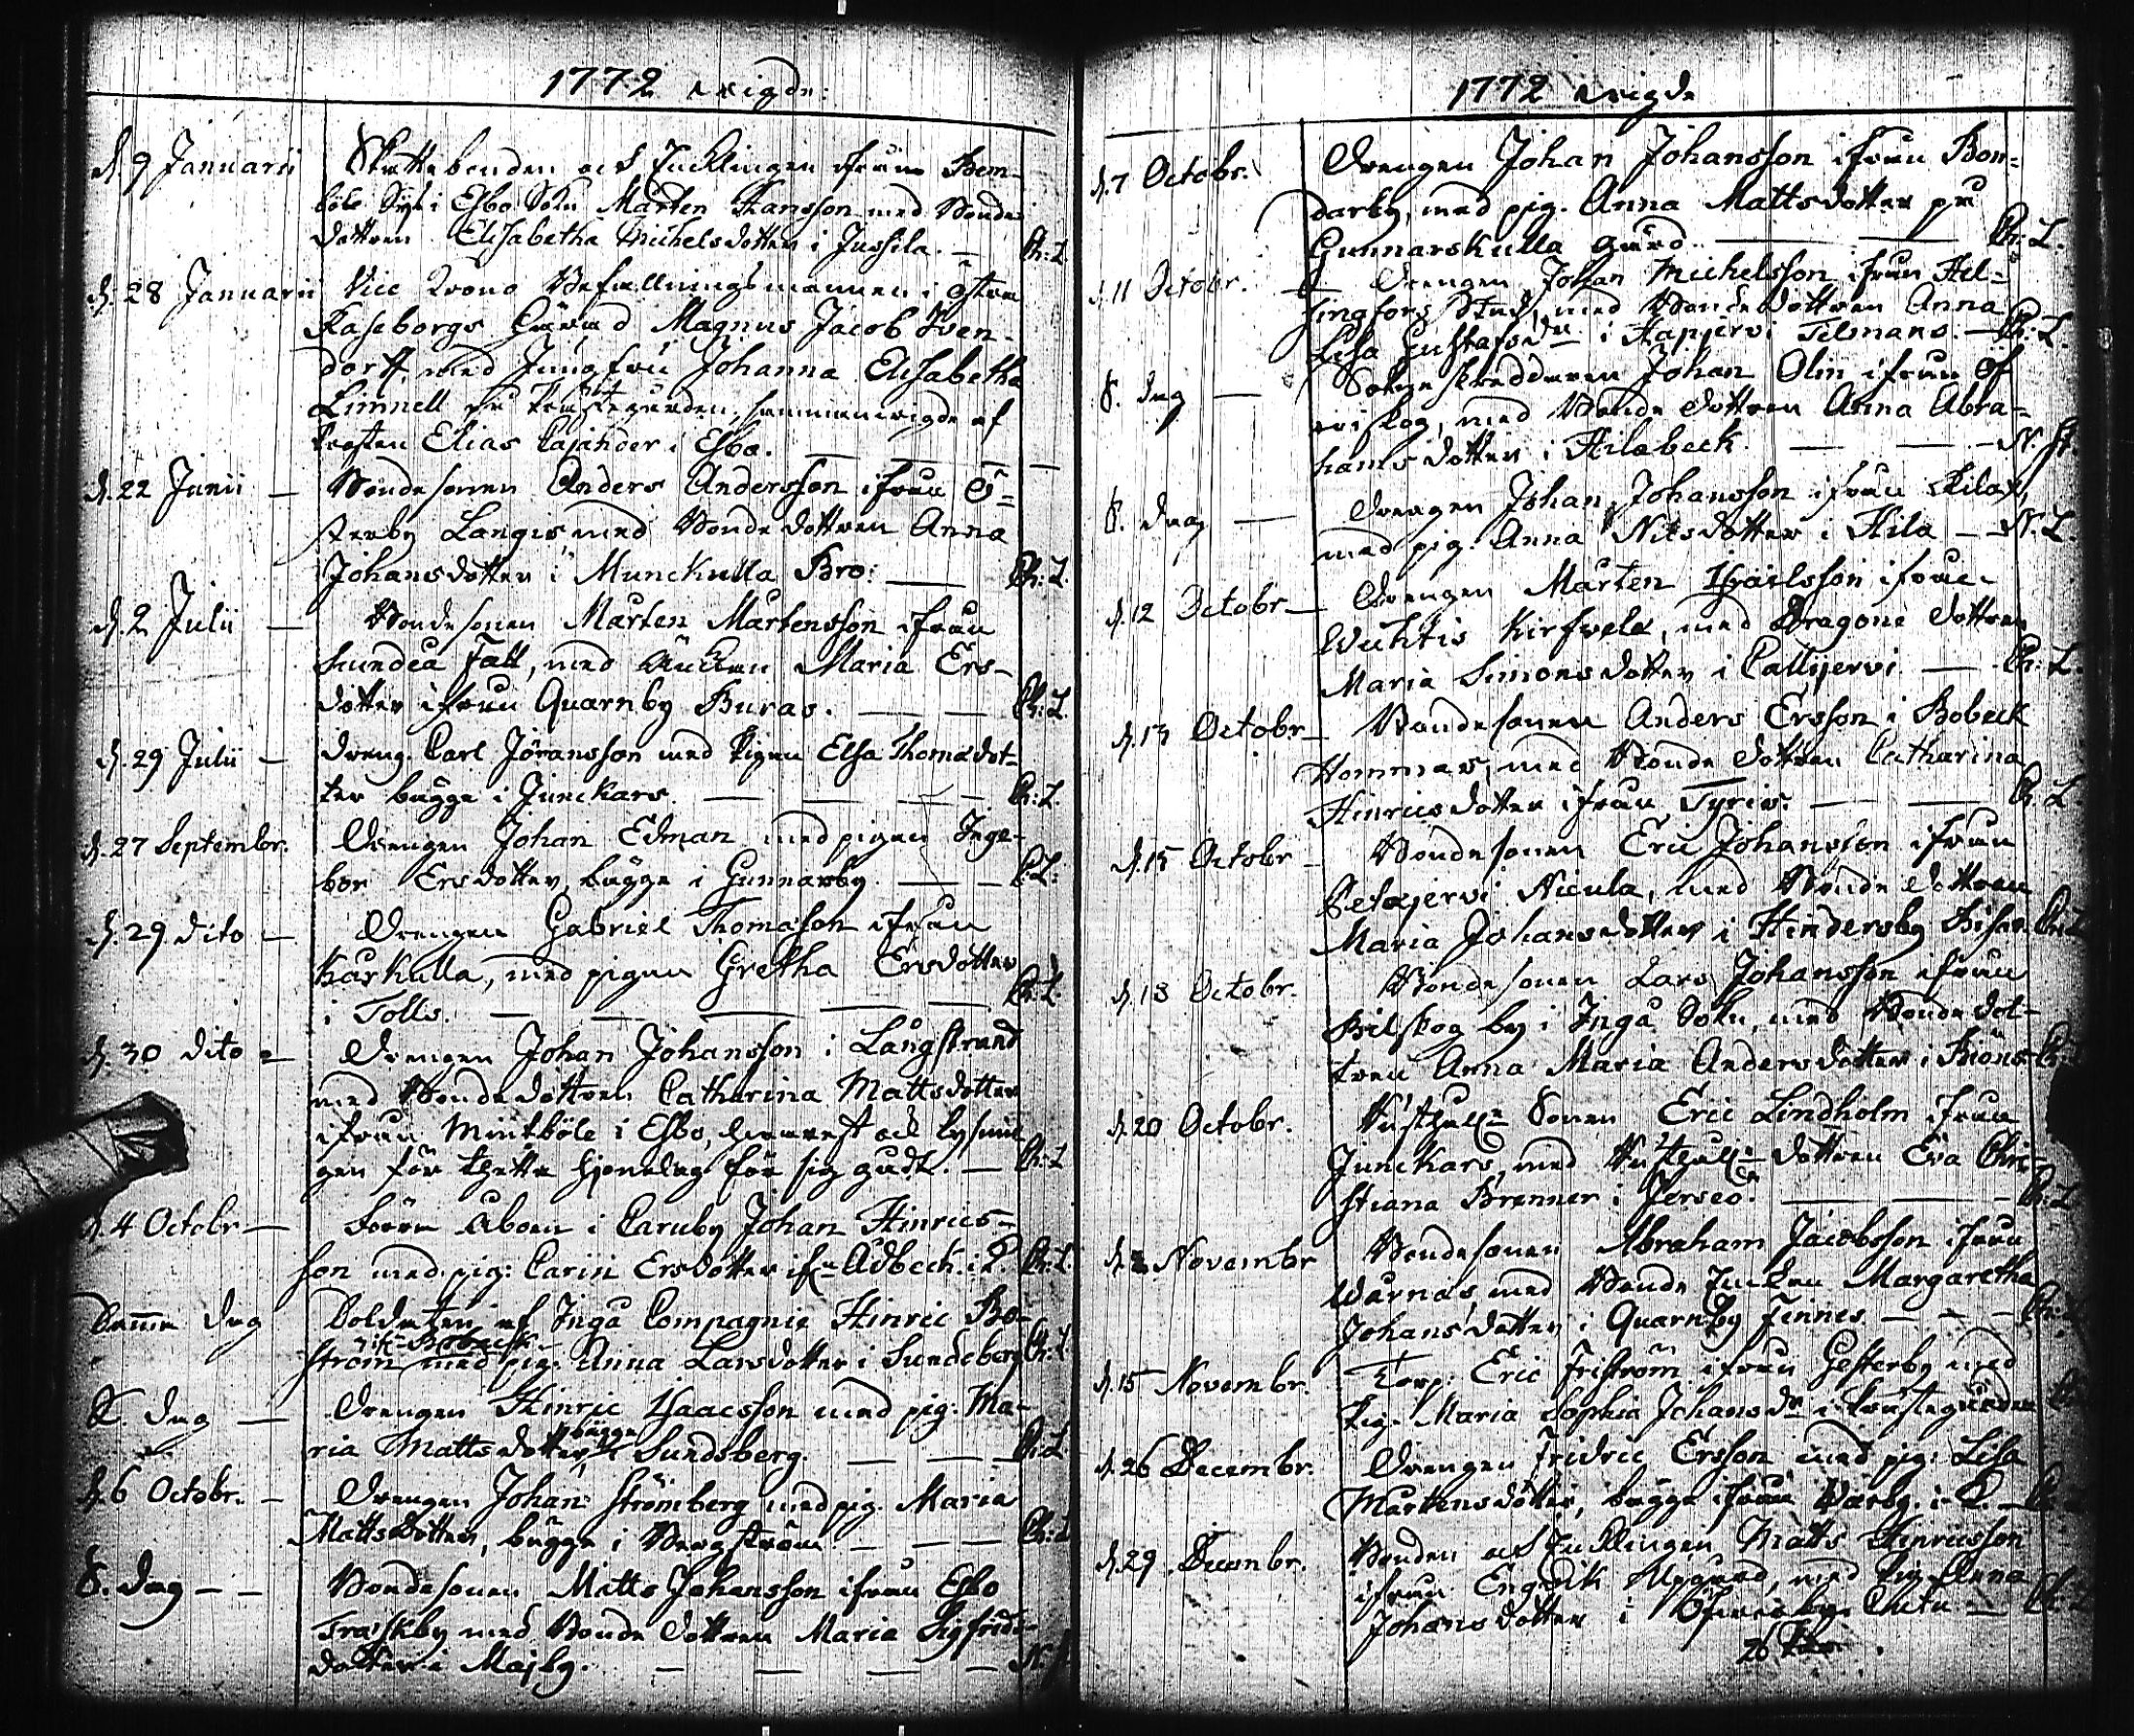 1772 wigde
d. 9 Januarii Skattebonden och Encklingen ifrån Bem-
böle By i Esbo Sokn Mårten Hansson med Bonde
dottren Elisabetha Michelsdotter i Jussila. — Ch: L.
d. 28 Januarii Vice Krono Befallningsmannen i östra
Raseborgs härad Magnus Jacob
dorff, med Jungfru Johanna Elisabetha
Limnell på Prästegården, sammanwigde af
Prosten Elias Cajander i Esbo. — — —
d. 22 Junii — Bondesonen Anders Andersson ifrån Ö-
sterby Langis med Bonde dottren Anna
Johansdotter i Munckulla Bro: — Ch: L.
d. 2 Julii — Bondesonen Mårten Mårtensson ifrån
Lundea Tall, med Änkan Maria Ers-
dotter ifrån Quarnby Buras. — — Ch: L.
d. 29 Julii — dreng. Carl Jöransson med Pigan Elsa Thomædot-
ter bägge i Junckars. — — — — Ch: L.
d. 27 Septembr. Drengen Johan Edman med pigan Inge-
bor Ersdotter, bägge i Gunnarby — — C: L:
d. 29 dito — Drengen Gabriel Thomasson ifrån
Kårkulla, med pigan Gretha Ersdotter
i Tolls. — — — — — Ch: L.
d. 30 dito — Drengen Johan Johansson i Långstrand
med Bonde dottren Catharina Mattsdotter
ifrån Mäntböle i Esbo, hwarest ock lysnin
gen för thetta hjonelag för sig gådt. — Ch: L
d. 4 Octobr — åboen i Caruby Johan Hinrics-
son med pig: Carin Ersdotter ifn Ådbeck i K. Ch: L.
Samma dag Soldaten af Ingå Compagnie Hinric Bo-
ström med pig. Anna Larsdotter i Sundsberg Ch: L
S. dag — Drengen Hinric Isaacsson med pig. Ma-
ria Mattsdotter, bägge i Sundsberg. — — — Ch: L
d. 6 Octobr. — Drengen Johan Strömberg med pig. Maria
Mattsdotter, bägge i Bergström. — — — Ch: L
S. dag — — Bondesonen Matts Johansson ifrån Esbo
Träskby med Bonde dottren Maria Sigfrids-
dotter i Majby. — — — — N.
1772 wigde
d. 7 Octobr. Drengen Johan Johansson ifrån Bon-
darby, med pig. Anna Mattsdotter på
Gunnarskulla gård. — — Ch: L.
d. 11 Octobr. — Drengen Johan Michelsson ifrån Hel-
singfors Stad, med Bonde dottren Anna
Lisa Gustafsdr i Hapjervi Tilmans. — Ch: L.
S. dag — Sokneskreddaren Johan Olin ifrån Öf
wiskog, med Bonde dottren Anna Abra-
hamsdotter i Hilabeck. — — — N. St.
S. dag — Drengen Johan Johansson ifrån Kila,
med pig. Anna Nilsdotter i Kila — N. L.
d. 12 Octobr — Drengen Mårten Israelsson ifrån
Wuhtis Kirfwela, med Dragone dottren
Maria Simonsdotter i Callijervi — Ch: L.
d. 13 Octobr — Bondesonen Anders Ersson i Bobeck
Hommas, med Bonde dottren Catharina
Hinricsdotter ifrån Tyris. — — Ch: L.
d. 15 Octobr — Bondesonen Eric Johansson ifrån
Petajervi Nicula, med Bonde dottren
Maria Johansdotter i Hindersby Bisas. Ch: L
d. 18 Octobr. Bondesonen Lars Johansson ifrån
Bilskog by i Ingå Sokn, med Bondedot-
tren Anna Maria Andersdotter i Biöns Ch: L
d. 20 Octobr. Rusthålln Sonen Eric Lindholm ifrån
Junckars, med Rusthålln dottren Eva Chri-
stiana Brenner i Jerseo. — — — Ch: L
d. Novembr Bondesonen Abraham Jacobsson ifrån
Warnäs, med Bonde Enckan Margaretha
Johansdotter i Quarnby Finnes — — — Ch:
d. 15 Novembr. Torp. Eric Friström ifrån Gesterby med
Pig. Maria Sophia Johansdr i Prästegården
d. 26 Decembr. Drengen Fridric Ersson med pig: Lisa
Mårtensdotter, bägge ifrån Wärby i K. —
d. 29 Decembr. Bonden och Encklingen Matts Hinricsson
ifrån Engwik Uppgård, med Pig. Anna
Johansdotter i Öfwerby — Ch: L
26 Par.